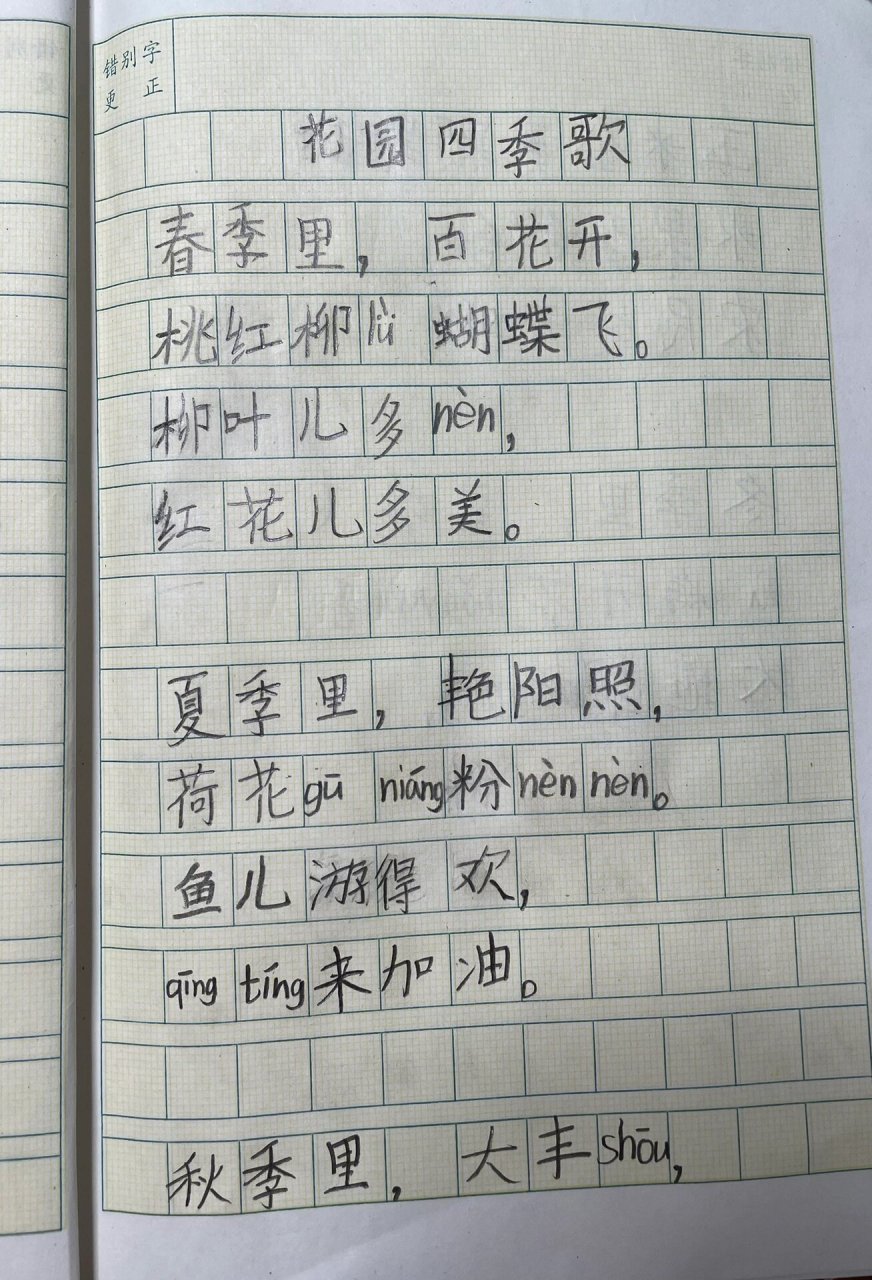 错别字
更 正
花园四季歌
春季里，百花开，
桃红柳lǜ蝴蝶飞。
柳叶儿多nèn，
红花儿多美。
夏季里，艳阳照，
荷花gū niáng粉nèn nèn。
鱼儿游得欢，
qīng tíng来加油。
秋季里，大丰shōu，